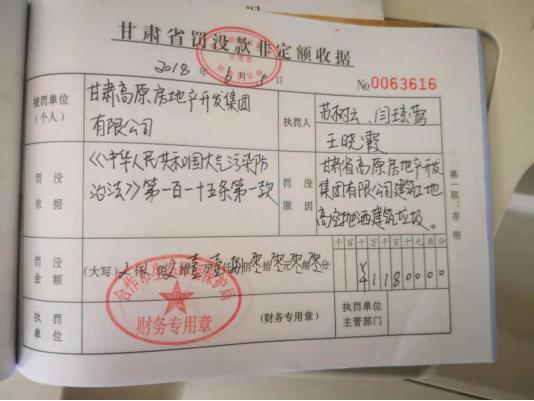 甘肃省罚没款非定额收据
2018年5月 日
No 0063616
被罚单位
(个人)
甘肃高原房地产开发集团
有限公司
执罚人
苏树云、闫琼莺
王晓霞
罚没
依据
《中华人民共和国大气污染防
治法》第一百一十五条第一款
罚没
原因
甘肃省高原房地产开
发集团有限公司建筑工地
建筑垃圾。
第一联:存根
罚没
金额
(大写)
壹万壹仟捌佰零拾零元零角零分
千百十万千百十元角分
¥1180000
执罚
单位
合作市
保护局
财务专用章
(财务专用章)
执罚单位
主管部门